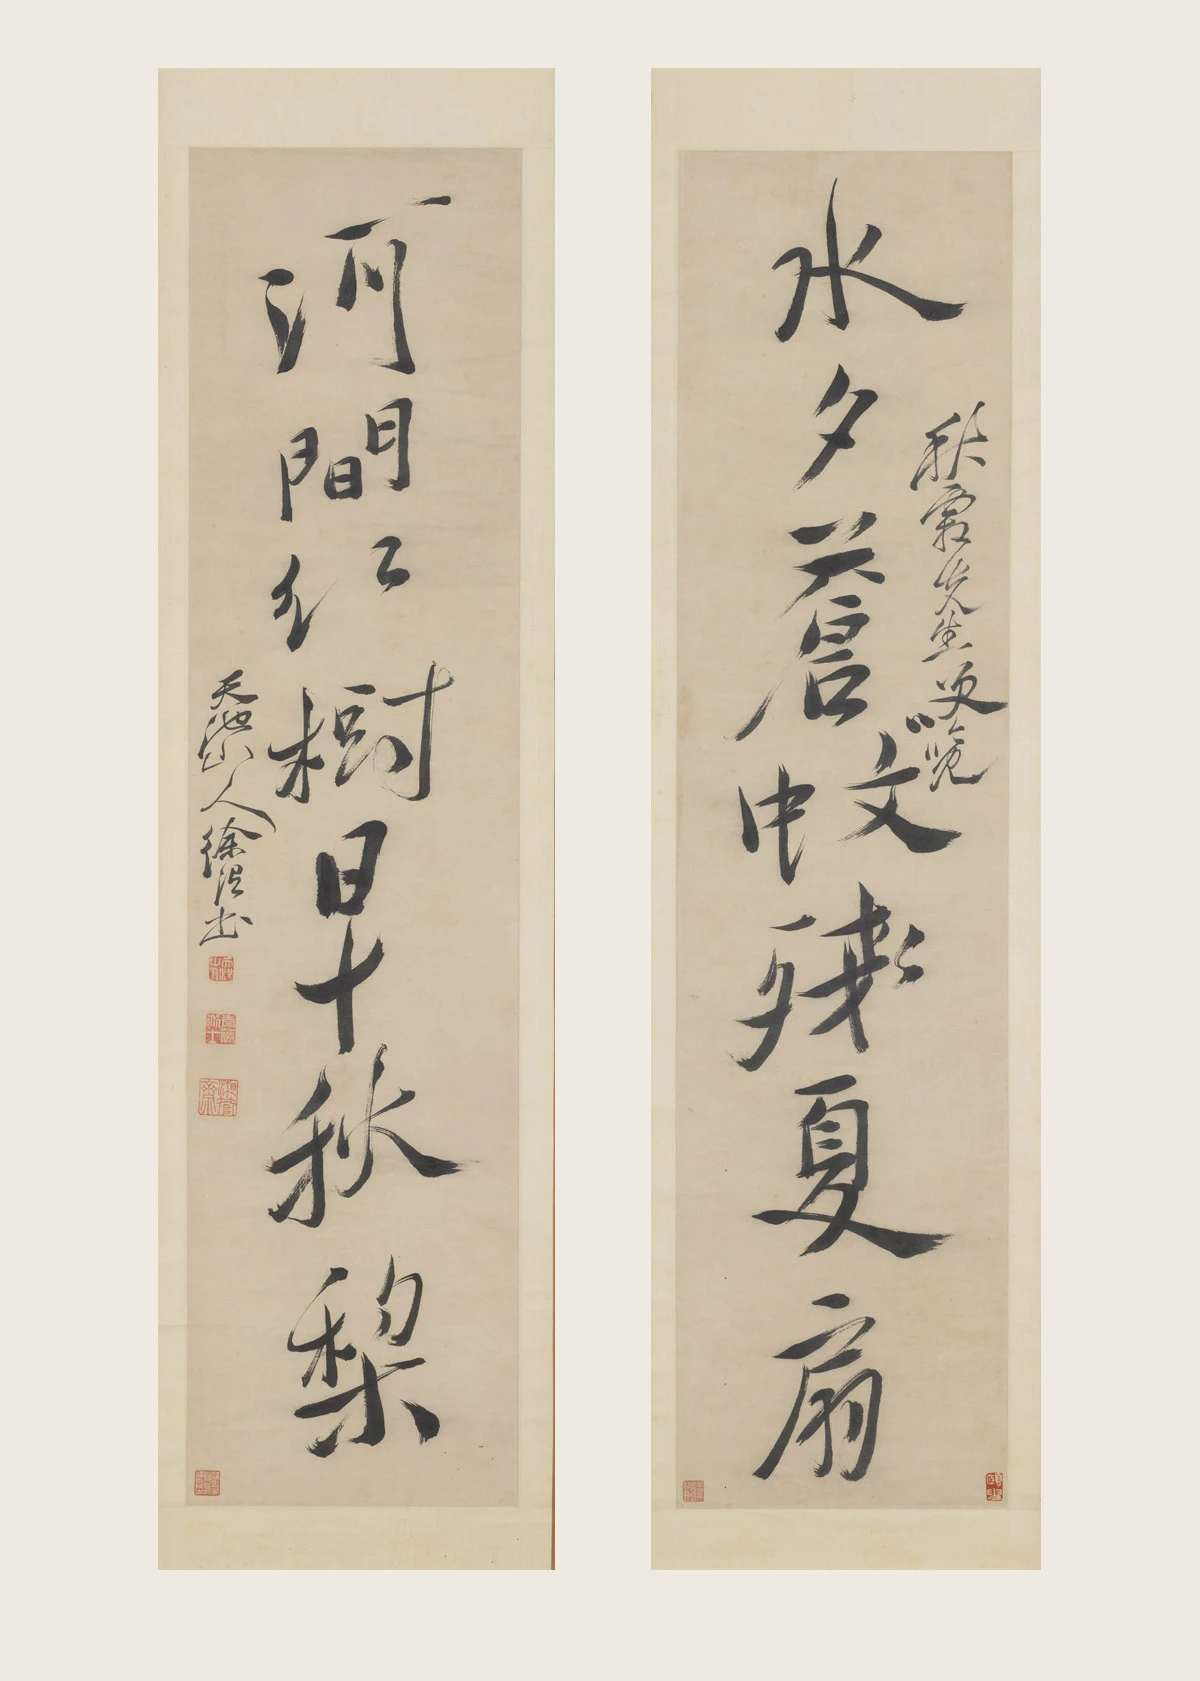 水夕蒼蚊殘夏扇
秋霞先生覽
河間紅樹早秋梨
天池山人徐渭書